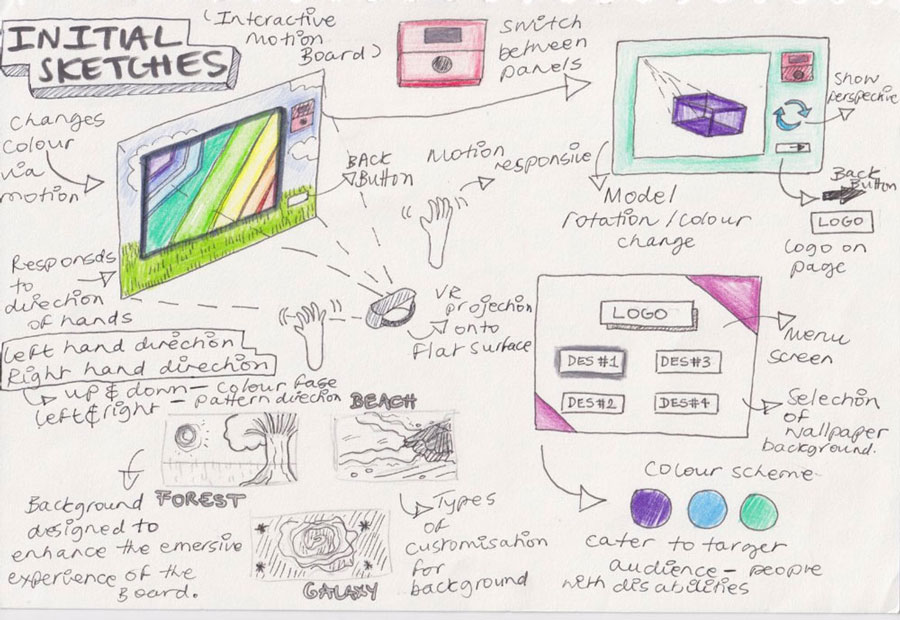 INITIAL
SKETCHES
(Interactive
Motion
Board)
Switch
between
panels
Changes
Colour
via
motion
BACK
Button
Motion
responsive
Show
perspective
Back
Button
LOGO
Logo on
page
Model
rotation / colour
change
Responsds
to
direction
of hands
VR
projection
onto
Flat surface
Left hand direction
Right hand direction
up & down — colour fase
left & right — pattern direction
LOGO
DES#1
DES#3
DES#2
DES#4
Menu
screen
Selection
of
wallpaper
background.
BEACH
FOREST
GALAXY
Background
designed to
enhance the emersive
experience of the
Board.
Types
of
customisation
for
background
Colour scheme
cater to target
audience — people
with disabilities